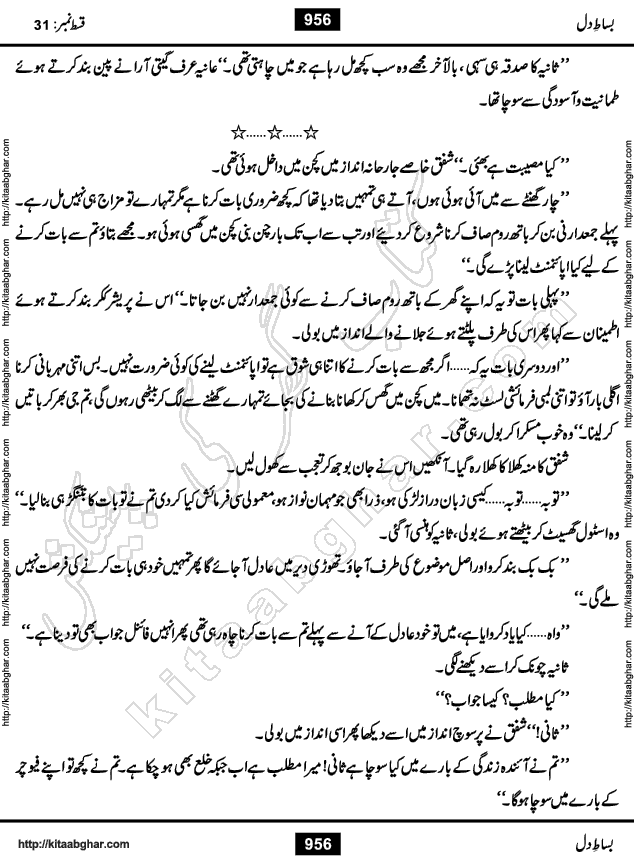 بساطِ دل 956 قسط نمبر: 31
’’ثانیہ کا صدقہ ہی سہی، بالآخر مجھے وہ سب کچھ مل رہا ہے جو میں چاہتی تھی۔‘‘ عانیہ عرف گیتی آرا نے پین بند کرتے ہوئے
طمانیت و آسودگی سے سوچا تھا۔
☆......☆......☆
’’کیا مصیبت ہے بھئی۔‘‘ شفق خاصے جارحانہ انداز میں کچن میں داخل ہوئی تھی۔
’’چار گھنٹے سے میں آئی ہوئی ہوں، آتے ہی تمہیں بتا دیا تھا کہ کچھ ضروری بات کرنا ہے مگر تمہارے تو مزاج ہی نہیں مل رہے۔
پہلے جمعدارنی بن کر باتھ روم صاف کرنا شروع کر دیئے اور تب سے اب تک باورچن بنی کچن میں گھسی ہوئی ہو۔ مجھے بتاؤ تم سے بات کرنے
کے لیے کیا اپائنمنٹ لینا پڑے گی۔‘‘
’’پہلی بات تو یہ کہ اپنے گھر کے باتھ روم صاف کرنے سے کوئی جمعدار نہیں بن جاتا۔‘‘ اس نے پریشر ککر بند کرتے ہوئے
اطمینان سے کہا پھر اس کی طرف پلٹتے ہوئے جلانے والے انداز میں بولی۔
’’اور دوسری بات یہ کہ......اگر مجھ سے بات کرنے کا اتنا ہی شوق ہے تو اپائنمنٹ لینے کی کوئی ضرورت نہیں۔ بس اتنی مہربانی کرنا
اگلی بار آؤ تو اتنی لمبی فرمائشی لسٹ نہ تھمانا۔ میں کچن میں گھس کر کھانا بنانے کی بجائے تمہارے گھٹنے سے لگ کر بیٹھی رہوں گی، تم جی بھر کر باتیں
کر لینا۔‘‘ وہ خوب مسکرا کر بول رہی تھی۔
شفق کا منہ کھلا کا کھلا رہ گیا۔ آنکھیں اس نے جان بوجھ کر تعجب سے کھول لیں۔
’’توبہ......توبہ......کیسی زبان دراز لڑکی ہو، ذرا بھی جو مہمان نواز ہو، معمولی سی فرمائش کیا کر دی تم نے تو بات کا بتنگڑ ہی بنا لیا۔‘‘
وہ اسٹول گھسیٹ کر بیٹھتے ہوئے بولی، ثانیہ کو ہنسی آ گئی۔
’’بک بک بند کرو اور اصل موضوع کی طرف آ جاؤ۔ تھوڑی دیر میں عادل آ جائے گا پھر تمہیں خود ہی بات کرنے کی فرصت نہیں
ملے گی۔‘‘
’’واہ......کیا یاد کروایا ہے، میں تو خود عادل کے آنے سے پہلے تم سے بات کرنا چاہ رہی تھی پھر انہیں فائنل جواب بھی تو دینا ہے۔‘‘
ثانیہ چونک کر اسے دیکھنے لگی۔
’’کیا مطلب؟ کیسا جواب؟‘‘
’’ثانی!‘‘ شفق نے پر سوچ انداز میں اسے دیکھا پھر اسی انداز میں بولی۔
’’تم نے آئندہ زندگی کے بارے میں کیا سوچا ہے ثانی! میرا مطلب ہے اب جبکہ خلع بھی ہو چکا ہے۔ تم نے کچھ تو اپنے فیوچر
کے بارے میں سوچا ہوگا۔‘‘
http://kitaabghar.com
http://kitaabghar.com
http://kitaabghar.com
http://kitaabghar.com
http://kitaabghar.com
http://kitaabghar.com
http://kitaabghar.com
http://kitaabghar.com
http://kitaabghar.com
http://kitaabghar.com
http://kitaabghar.com
http://kitaabghar.com
کتاب گھر کی پیشکش
kitaabghar.com
بساطِ دل 956 http://kitaabghar.com